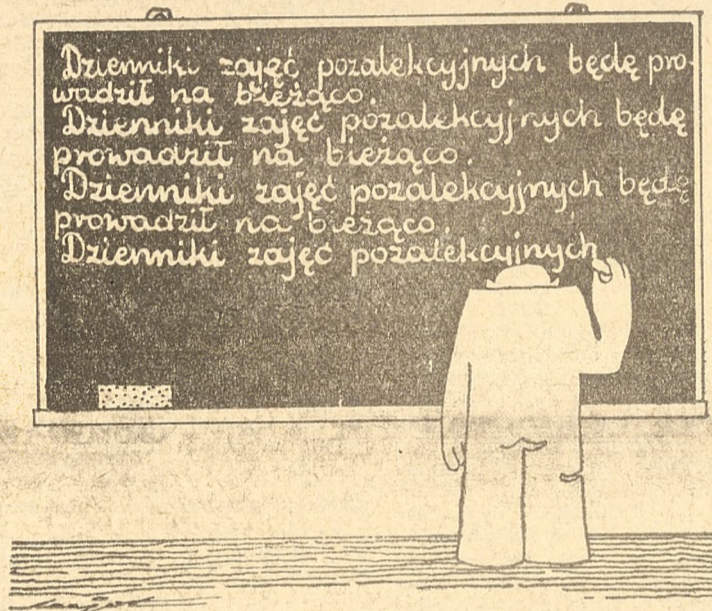 Dzienniki zajęć pozalekcyjnych będę pro-
wadził na bieżąco.
Dzienniki zajęć pozalekcyjnych będę
prowadził na bieżąco.
Dzienniki zajęć pozalekcyjnych będę
prowadził na bieżąco.
Dzienniki zajęć pozalekcyjnych